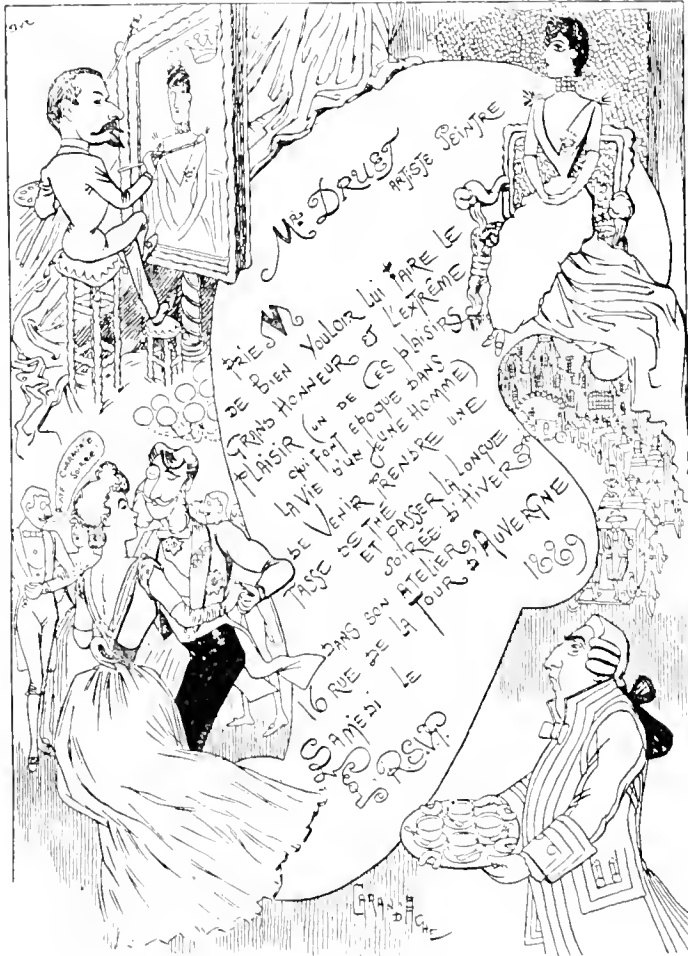 Mr DRUET
ARTISTE PEINTRE
PRIE M
DE BIEN VOULOIR LUI FAIRE LE
GRAND HONNEUR ET L'EXTRÊME
PLAISIR (UN DE CES PLAISIRS
QUI FONT EPOQUE DANS
LA VIE D'UN JEUNE HOMME)
DE VENIR PRENDRE UNE
TASSE DE THÉ
ET PASSER LA LONGUE
SOIRÉE D'HIVER
DANS SON ATELIER
16 RUE DE LA TOUR D'AUVERGNE
1889
SAMEDI LE
R.S.V.P.
SOIRÉE
CARAN D'ACHE